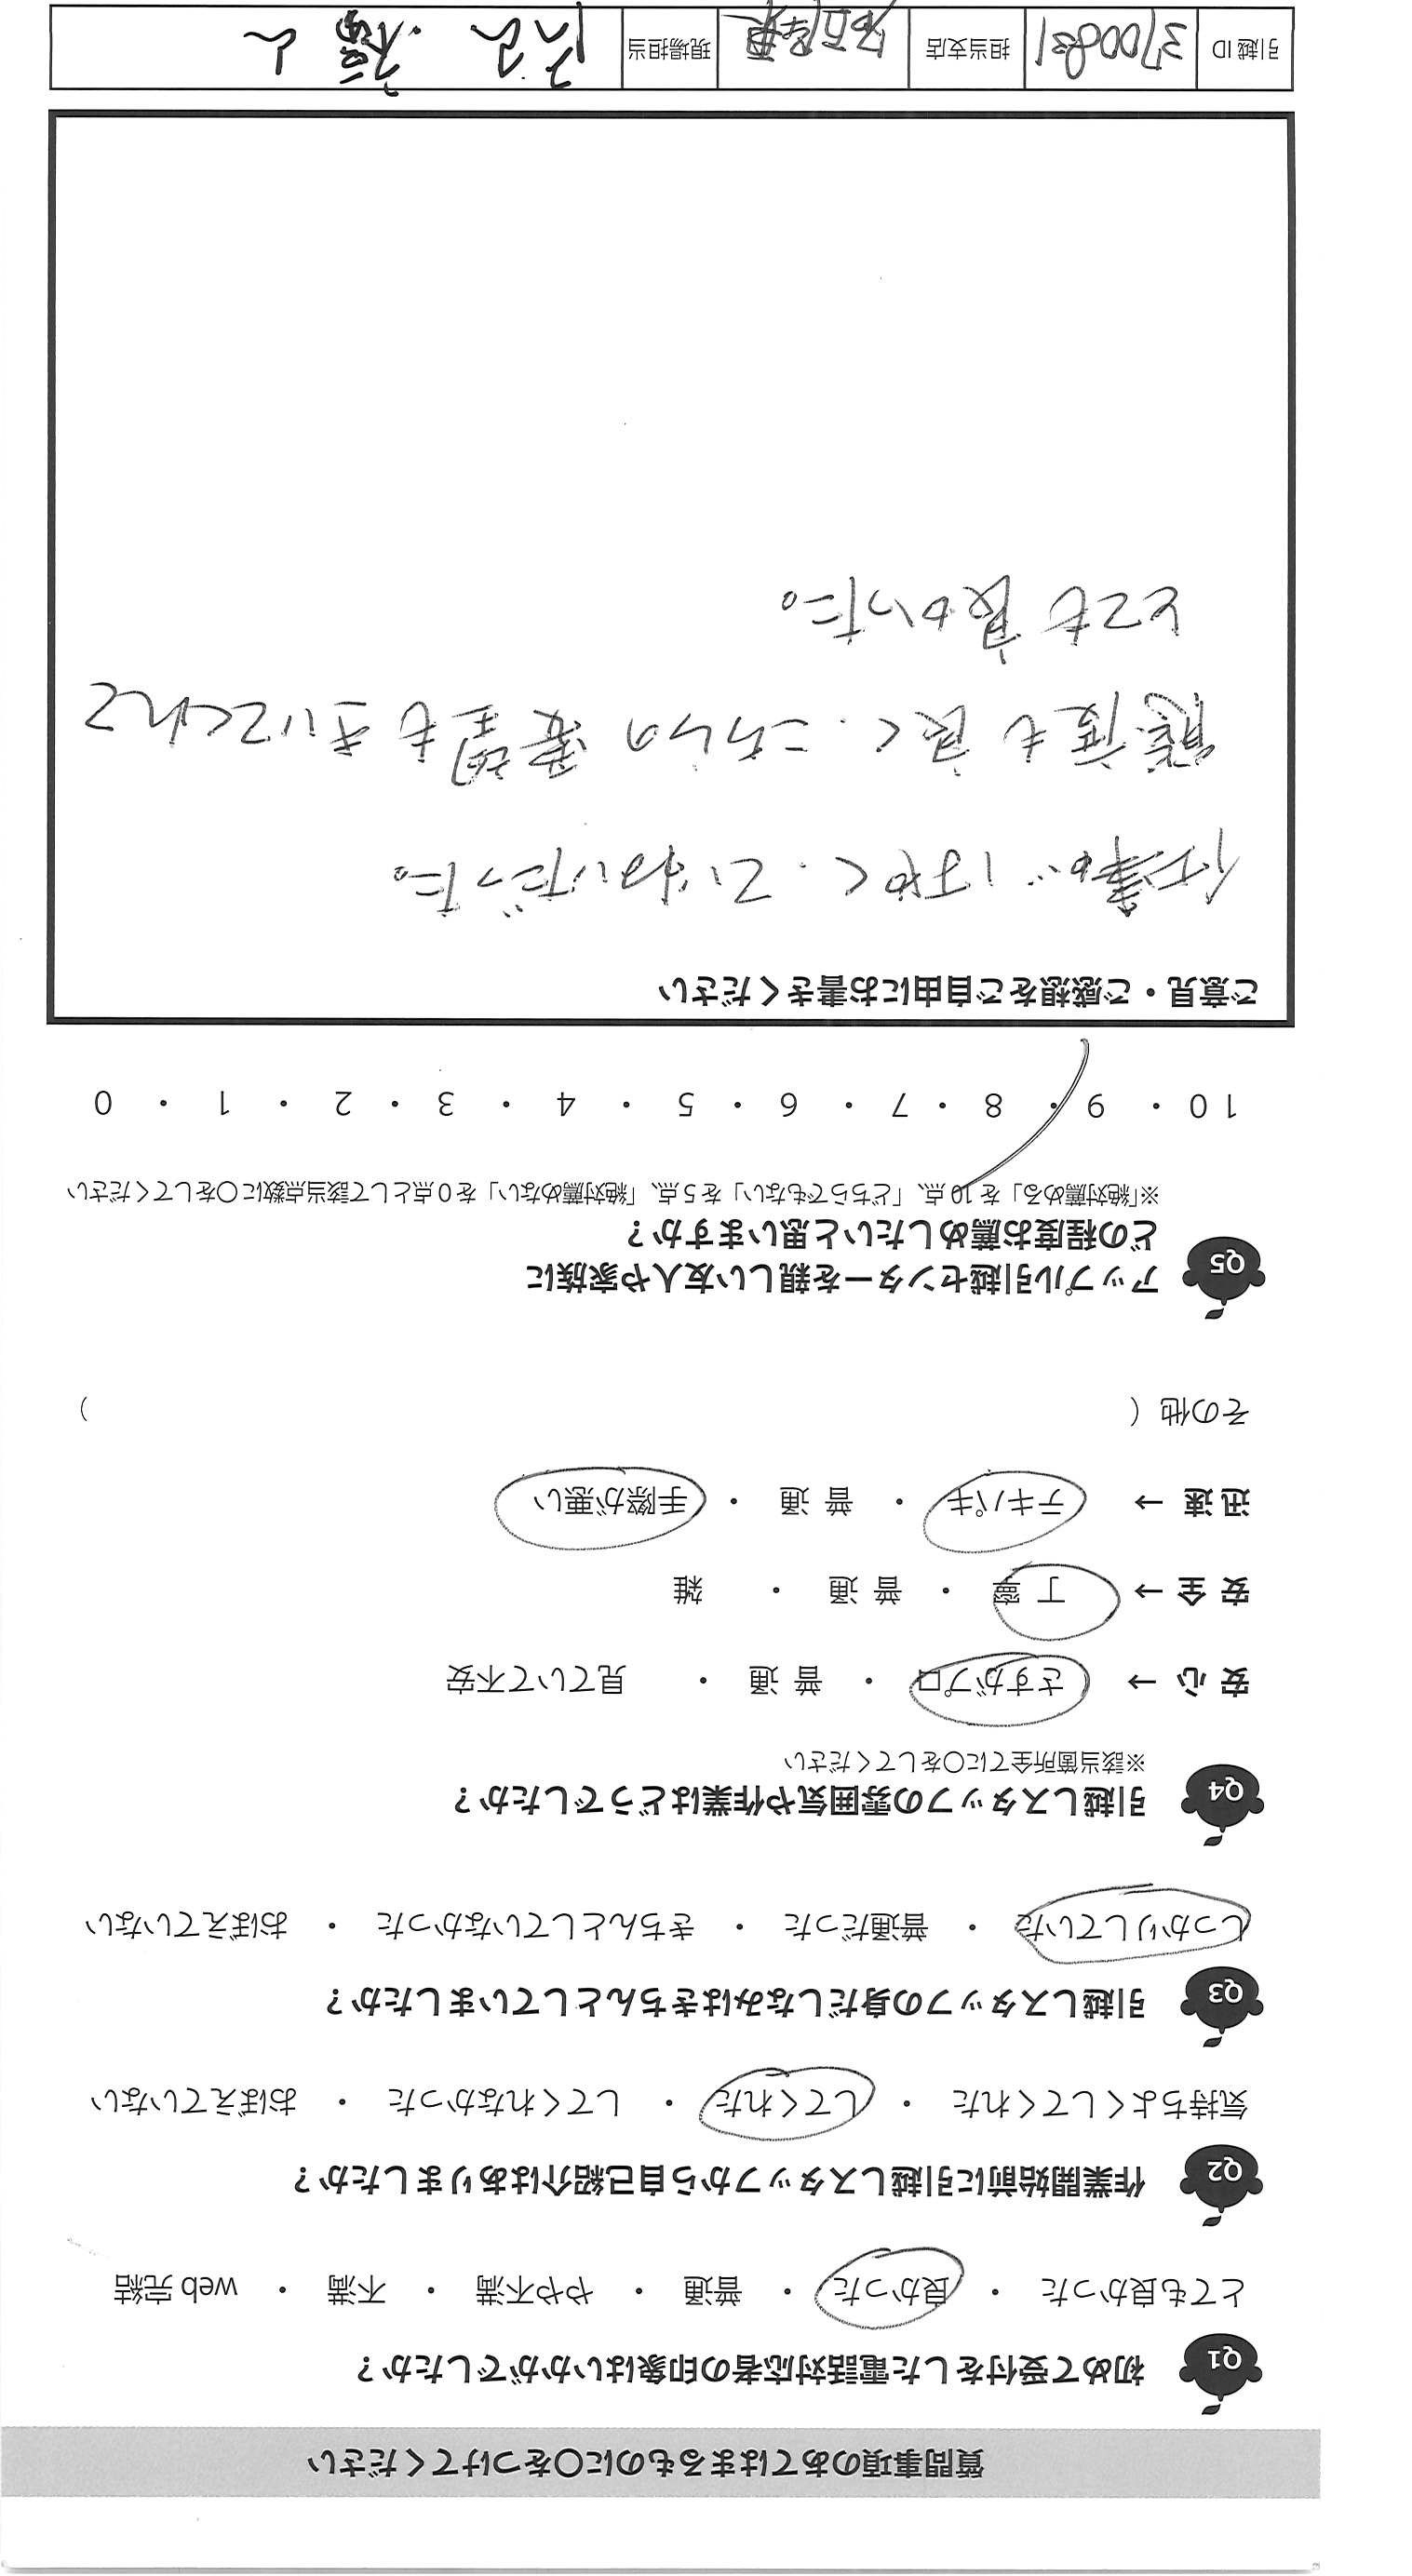 質問事項のあてはまるものに〇をつけてください
Q1 初めて受付をした電話対応者の印象はいかがでしたか？
とても良かった ・ 良かった ・ 普通 ・ やや不満 ・ 不満 ・ web 完結
Q2 作業開始前に引越しスタッフから自己紹介はありましたか？
気持ちよくしてくれた ・ してくれた ・ してくれなかった ・ おぼえていない
Q3 引越しスタッフの身だしなみはきちんとしていましたか？
しっかりしていた ・ 普通だった ・ きちんとしていなかった ・ おぼえていない
Q4 引越しスタッフの雰囲気や作業はどうでしたか？
※該当箇所全てに〇をしてください
安心 → さすがプロ ・ 普通 ・ 見ていて不安
安全 → 丁寧 ・ 普通 ・ 雑
迅速 → テキパキ ・ 普通 ・ 手際が悪い
その他（ ）
Q5 アップル引越センターを親しい友人や家族に
どの程度お薦めしたいと思いますか？
※「絶対薦める」を 10 点、「どちらでもない」を 5 点、「絶対薦めない」を 0 点として該当点数に〇をしてください
10 ・ 9 ・ 8 ・ 7 ・ 6 ・ 5 ・ 4 ・ 3 ・ 2 ・ 1 ・ 0
ご意見・ご感想をご自由にお書きください
仕事が はやく、ていねいだった。
態度も 良く、こちらの 要望も きいてくれて
とても 良かった。
引越 ID 担当支店 現場担当